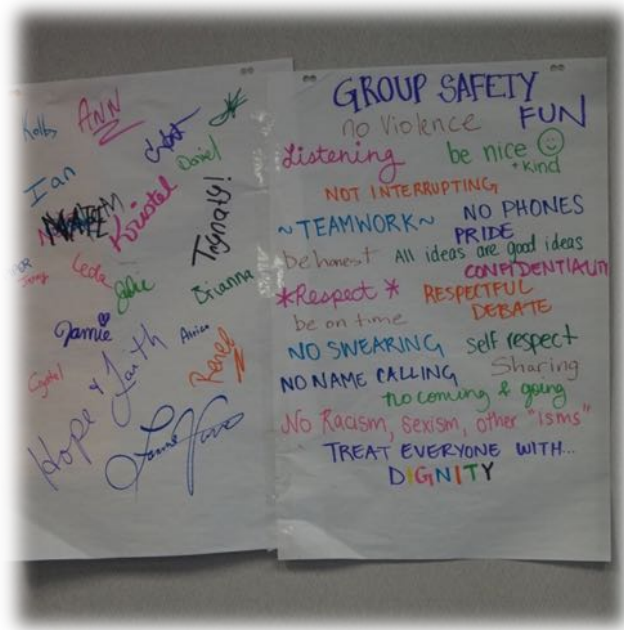 Kolby
ANN
Ian
Daniel
Kristel
Trynaty!
Leda
Julie
Brianna
Jamie
Crystal
Renee
Hope & Faith
GROUP SAFETY
no Violence
FUN
Listening
be nice
+ kind
NOT INTERRUPTING
~TEAMWORK~
NO PHONES
PRIDE
be honest
All ideas are good ideas
CONFIDENTIALITY
*Respect*
RESPECTFUL
DEBATE
be on time
NO SWEARING
self respect
NO NAME CALLING
Sharing
no coming & going
No Racism, sexism, other "isms"
TREAT EVERYONE WITH...
DIGNITY